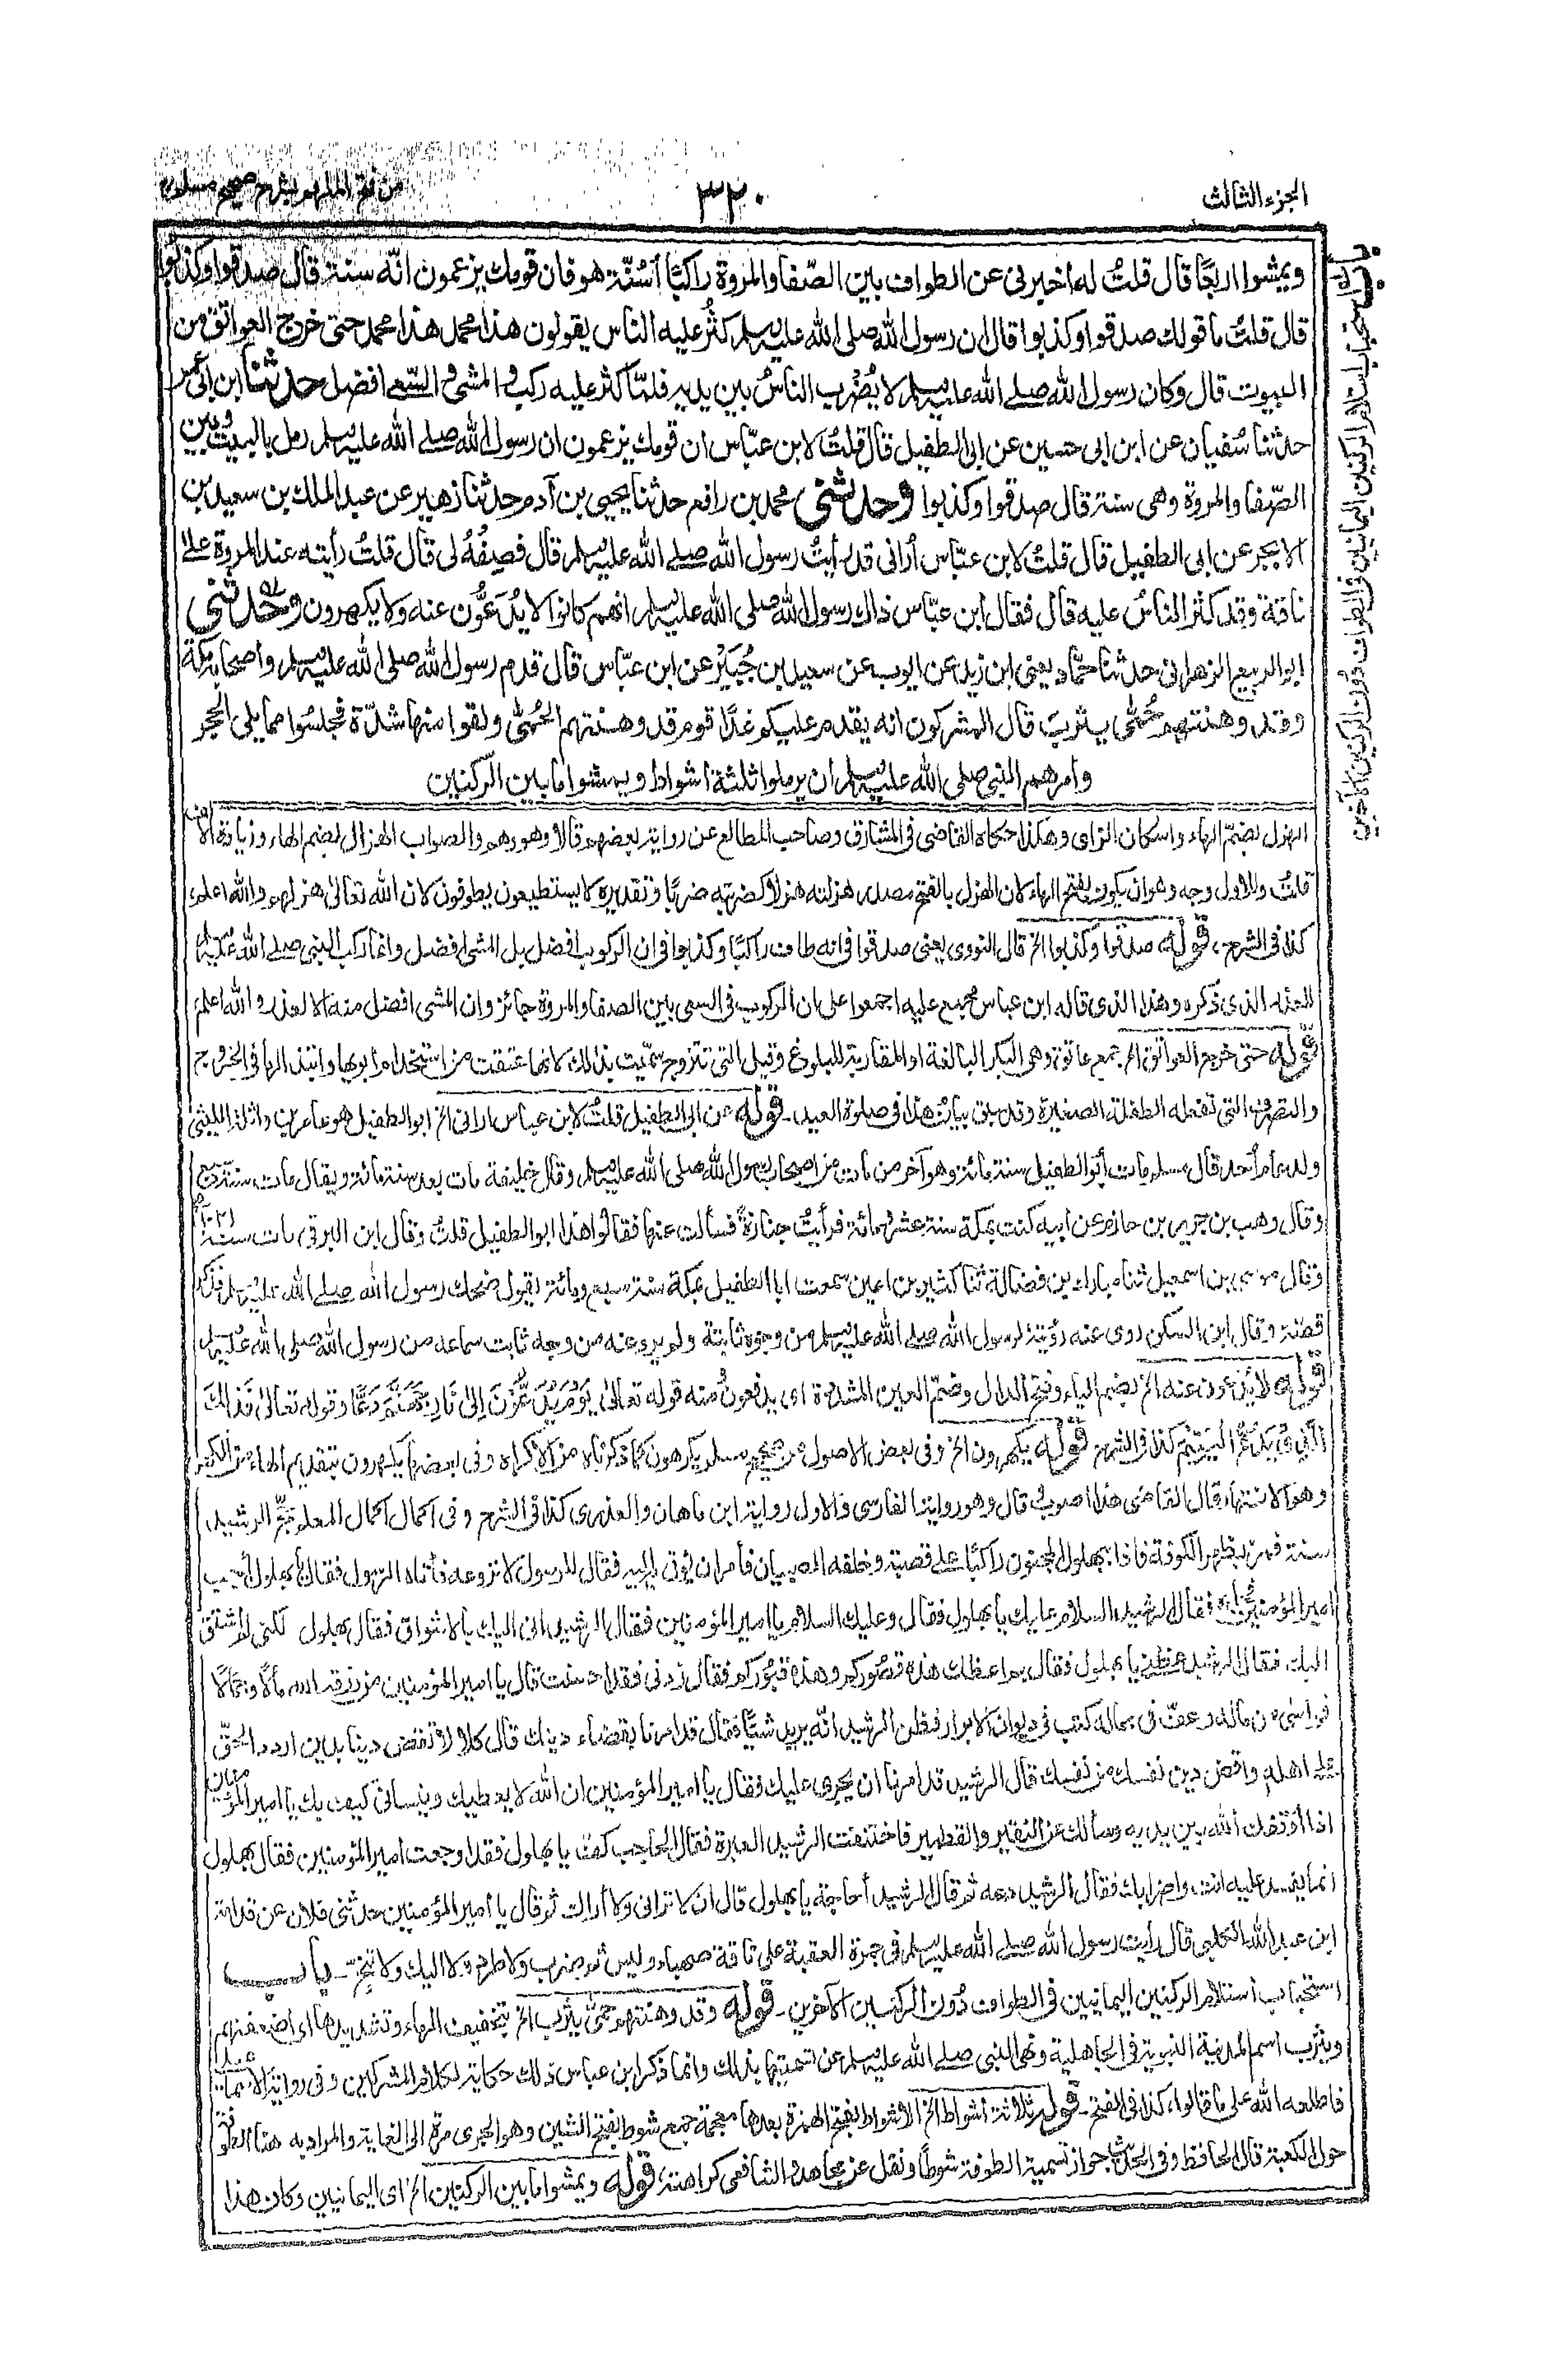 الجزء الثالث
٣٢٠
من فتح الملهم بشرح صحيح مسلم
باب استحباب استلام الركنين اليمانيين فى الطواف دون الركنين الآخرين
ويمشوا اربعًا قال قلتُ له اخبرنى عن الطواف بين الصّفا والمروة راكبًا أسُنّة هو فان قومك يزعمون انّه سنة قال صدقوا وكذبوا
قال قلتُ ما قولك صدقوا وكذبوا قال ان رسول الله صلى الله عليه وسلم كثُر عليه الناس يقولون هذا محمد هذا محمد حتى خرج العواتق من
البيوت قال وكان رسول الله صلے الله عليه وسلم لا يُضْرب الناسُ بين يديه فلمّا كثر عليه ركب والمشى والسّعى افضل حدثنا ابن ابى عمر
حدثنا سُفيان عن ابن ابى حسين عن ابى الطفيل قال قلتُ لابن عبّاس ان قومك يزعمون ان رسول الله صلے الله عليه وسلم رمل بالبيت وبين
الصّفا والمروة وهى سنة قال صدقوا وكذبوا وحدثنى محمد بن رافع حدثنا يحيى بن آدم حدثنا زهير عن عبد الملك بن سعيد بن
الابجر عن ابى الطفيل قال قلتُ لابن عبّاس أُرانى قد رأيتُ رسول الله صلے الله عليه وسلم قال فصِفْهُ لى قال قلتُ رأيته عند المروة علے
ناقة وقد كثر الناسُ عليه قال فقال ابن عبّاس ذاك رسول الله صلى الله عليه وسلم انهم كانوا لا يُدَعُّون عنه ولا يكهرون وحدثنى
ابو الربيع الزهرانى حدثنا حمّاد يعنى ابن زيد عن ايوب عن سعيد بن جُبَيْر عن ابن عبّاس قال قدم رسول الله صلى الله عليه وسلم واصحابه مكة
وقد وهنتهم حُمّى يثربَ قال المشركون انه يقدم عليكم غدًا قوم قد وهنتهم الحُمّى ولقوا منها شدّة فجلسُوا مما يلى الحجر
وامرهم النبى صلى الله عليه وسلم ان يرملوا ثلثة اشواط ويمشوا ما بين الركنين
الهزل بضمّ الهاء واسكان الزاى وهكذا حكاه القاضى فى المشارق وصاحب المطالع عن رواية بعضهم قالا وهو وهم والصواب الهزال بضم الهاء وزيادة الالف
قلتُ وللاول وجه وهو ان يكون بفتح الهاء لان الهزل بالفتح مصدر هزلته هزلا كضربته ضربًا وتقديره لا يستطيعون يطوفون لان الله تعالى هزلهم والله اعلم
كذا فى الشرح، قوله صدقوا وكذبوا الخ قال النووى يعنى صدقوا فى انه طاف راكبًا وكذبوا فى ان الركوب افضل بل المشى افضل وانما ركب النبى صلے الله عليه وسلم
للعذر الذى ذكره وهذا الذى قاله ابن عباس مجمع عليه اجمعوا على ان الركوب فى السعى بين الصفا والمروة جائز وان المشى افضل منه الا لعذر والله اعلم
قوله حتى خرج العواتق الخ جمع عاتق وهى البكر البالغة او المقاربة للبلوغ وقيل التى تتزوج سمّيت بذلك لانها عتقت من استخدام أبويها وابتذالها فى الخروج
والتصرف التى تفعله الطفلة الصغيرة وقد سبق بيانُ هذا فى صلوة العيد، قوله عن ابى الطفيل قلتُ لابن عباس ارانى الخ ابو الطفيل هو عامر بن واثلة الليثى
ولد عام أحد قال مسلم مات أبو الطفيل سنة مائة وهو آخر من مات من اصحاب رسول الله صلى الله عليه وسلم وقال خليفة مات بعد سنة مائة ويقال مات سنة
وقال وهب بن جرير بن حازم عن ابيه كنت بمكة سنة عشر ومائة فرأيتُ جنازةً فسألت عنها فقالوا هذا ابو الطفيل قلتُ وقال ابن البرقى مات سنة ١٠٢
وقال موسى بن اسمعيل ثنا مبارك بن فضالة ثنا كثير بن اعين سمعت ابا الطفيل بمكة سنة سبع ومائة يقول ضحك رسول الله صلے الله عليه وسلم فذكر
قصة وقال ابن السكن روى عنه رؤيته لرسول الله صلے الله عليه وسلم من وجوه ثابتة ولم يرو عنه من وجه ثابت سماعه من رسول الله صلى الله عليه وسلم
قوله لا يدعون عنه الخ بضم الياء وفتح الدال وضمّ العين المشددة اى يدفعون ومنه قوله تعالىٰ يَوْمَ يُدَعُّوْنَ اِلىٰ نَارِ جَهَنَّمَ دَعًّا وقوله تعالىٰ فَذٰلِكَ
الَّذِىْ يَدُعُّ الْيَتِيْمَ كذا فى الشرح قوله يكهرون الخ وفى بعض الاصول من صحيح مسلم يكرهون كما ذكرناه من الاكراه وفى بعضها يكهرون بتقديم الهاء من الكهر
وهو الانتهار قال القاضى هذا اصوب قال وهو رواية الفارسى والاول رواية ابن ماهان والعذرى كذا فى الشرح وفى اكمال اكمال المعلم حَجَّ الرشيد
سنة فمرّ بظهر الكوفة فاذا بهلول المجنون راكبًا على قصبة وخلفه الصبيان فأمر ان يؤتى به اليه فقال للرسول لا تروعه فأتاه الرسول فقال يا بهلول أجب
امير المؤمنين فقال الرشيد السلام عليك يا بهلول فقال وعليك السلام يا امير المؤمنين فقال الرشيد انى اليك بالاشواق فقال بهلول لكنى لم أشتق
اليك فقال الرشيد عظنى يا بهلول فقال بما اعظك هذه قصوركم وهذه قبوركم فقال زدنى فقد احسنت قال يا امير المؤمنين من رزقه الله مالًا وجمالًا
فواسى من ماله وعفّ فى جماله كتب فى ديوان الابرار فظن الرشيد انّه يريد شيئًا فقال قد امرنا بقضاء دينك قال كلا لا تقضِ دينًا بدين اردد الحقّ
على اهله واقض دين نفسك من نفسك قال الرشيد قد امرنا ان يجرى عليك فقال يا امير المؤمنين ان الله لا يعطيك وينسانى كيف بك يا امير المؤمنين
اذا أوقفك الله بين يديه وسألك عن النقير والقطمير فاختنقت الرشيد العبرة فقال الحاجب كفّ يا بهلول فقد اوجعت امير المؤمنين فقال بهلول
انما يفسد عليه انت واضرابك فقال الرشيد دعه ثم قال الرشيد أحاجة يا بهلول قال ان لا ترانى ولا أراك ثم قال يا أمير المؤمنين حدثنى فلان عن قدامة
ابن عبد الله الكلابى قال رأيت رسول الله صلے الله عليه وسلم فى جمرة العقبة على ناقة صهباء وليس ثم ضرب ولا طرد ولا اليك ولا تنحّ۔ باب
استحباب استلام الركنين اليمانيين فى الطواف دُون الركنين الآخرين۔ قوله وقد وهنتهم حمّى يثرب الخ بتخفيف الهاء وتشديدها اى اضعفتهم
ويثرب اسم المدينة النبوية فى الجاهلية ونهى النبى صلے الله عليه وسلم عن تسميتها بذلك وانما ذكر ابن عباس ذلك حكاية لكلام المشركين وفى رواية
فاطلعه الله على ما قالوا، كذا فى الفتح۔ قوله ثلاثة أشواط الخ الاشواط بفتح الهمزة بعدها معجمة جمع شوط بفتح الشين وهو الجرى مرة الى الغاية والمراد به هنا الطوفة
حول الكعبة قال الحافظ وفى الحديث جواز تسمية الطوفة شوطًا ونقل عن مجاهد والشافعى كراهته، قوله ويمشوا ما بين الركنين الخ اى اليمانيين وكان هذا